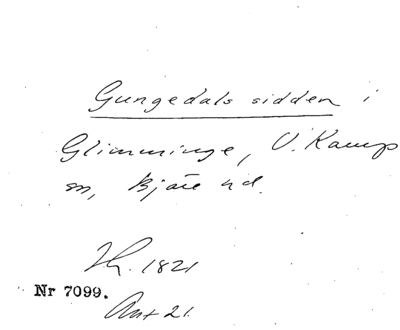 Gungedals sidden i
Glimminge, V. Karup
sn, Bjäre hd.
Jh. 1821
Nr 7099.
Ant 21.